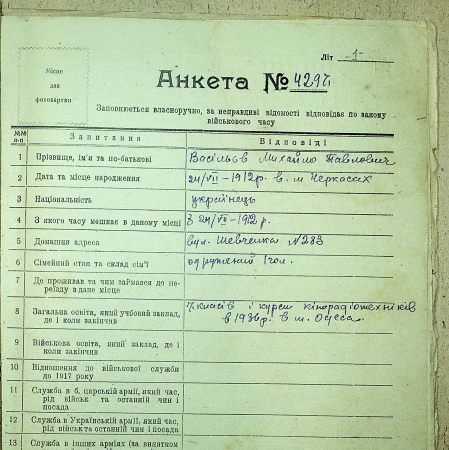 Літ -1-
Місце
для
фотокартки
Анкета № 4297
Заповнюється власноручно, за неправдиві відомості відповідає по закону
військового часу
№№ п-п Запитання Відповіді
1 Прізвище, ім'я та по-батькові Васільєв Михайло Павлович
2 Дата та місце народження 24/VII-1912р. в м. Черкасах
3 Національність українець
4 З якого часу мешкає в даному місці З 24/VII-1912 р.
5 Домашня адреса вул. Шевченка №283
6 Сімейний стан та склад сім'ї одружений 1 чол.
7 Де проживав та чим займався до пе-
реїзду в дане місце
8 Загальна освіта, який учбовий заклад,
де і коли закінчив
7 класів і курси кінорадіотехніків
в 1936р. в м. Одеса.
9 Військова освіта, який заклад, де і
коли закінчив
10 Відношення до військової служби
до 1917 року
11 Служба в б. царській армії, який час,
рід військ та останній чин і
посада
12 Служба в Українській армії, який час,
рід військ та останній чин і посада
13 Служба в інших арміях (за винятком